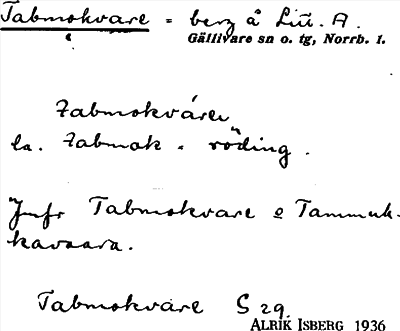 Tabmokvare = berg å Lit. A.
Gällivare sn o. tg, Norrb. l.
Tabmokvárē
la. tabmok = röding.
Jmfr Tabmokvare o Tammuk-
kavaara.
Tabmokvare S 29.
ALRIK ISBERG 1936